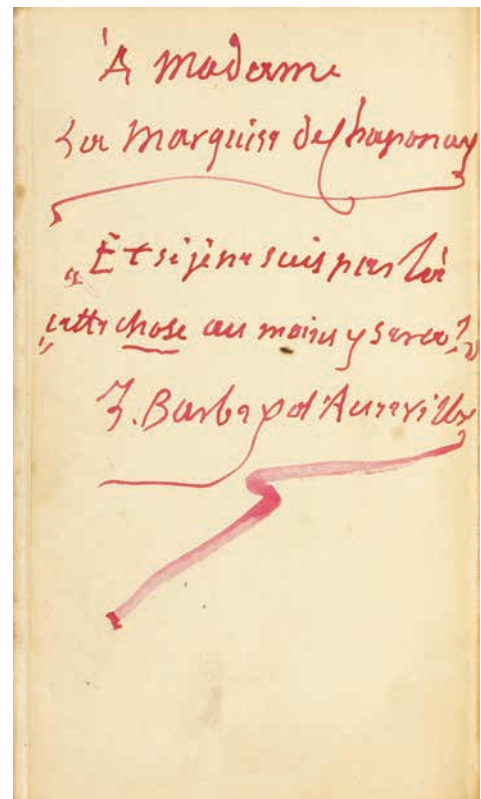 À Madame
La Marquise de Chaponay
„Et si je ne suis pas là
cette chose au moins y sera?"
J. Barbey d'Aurevilly